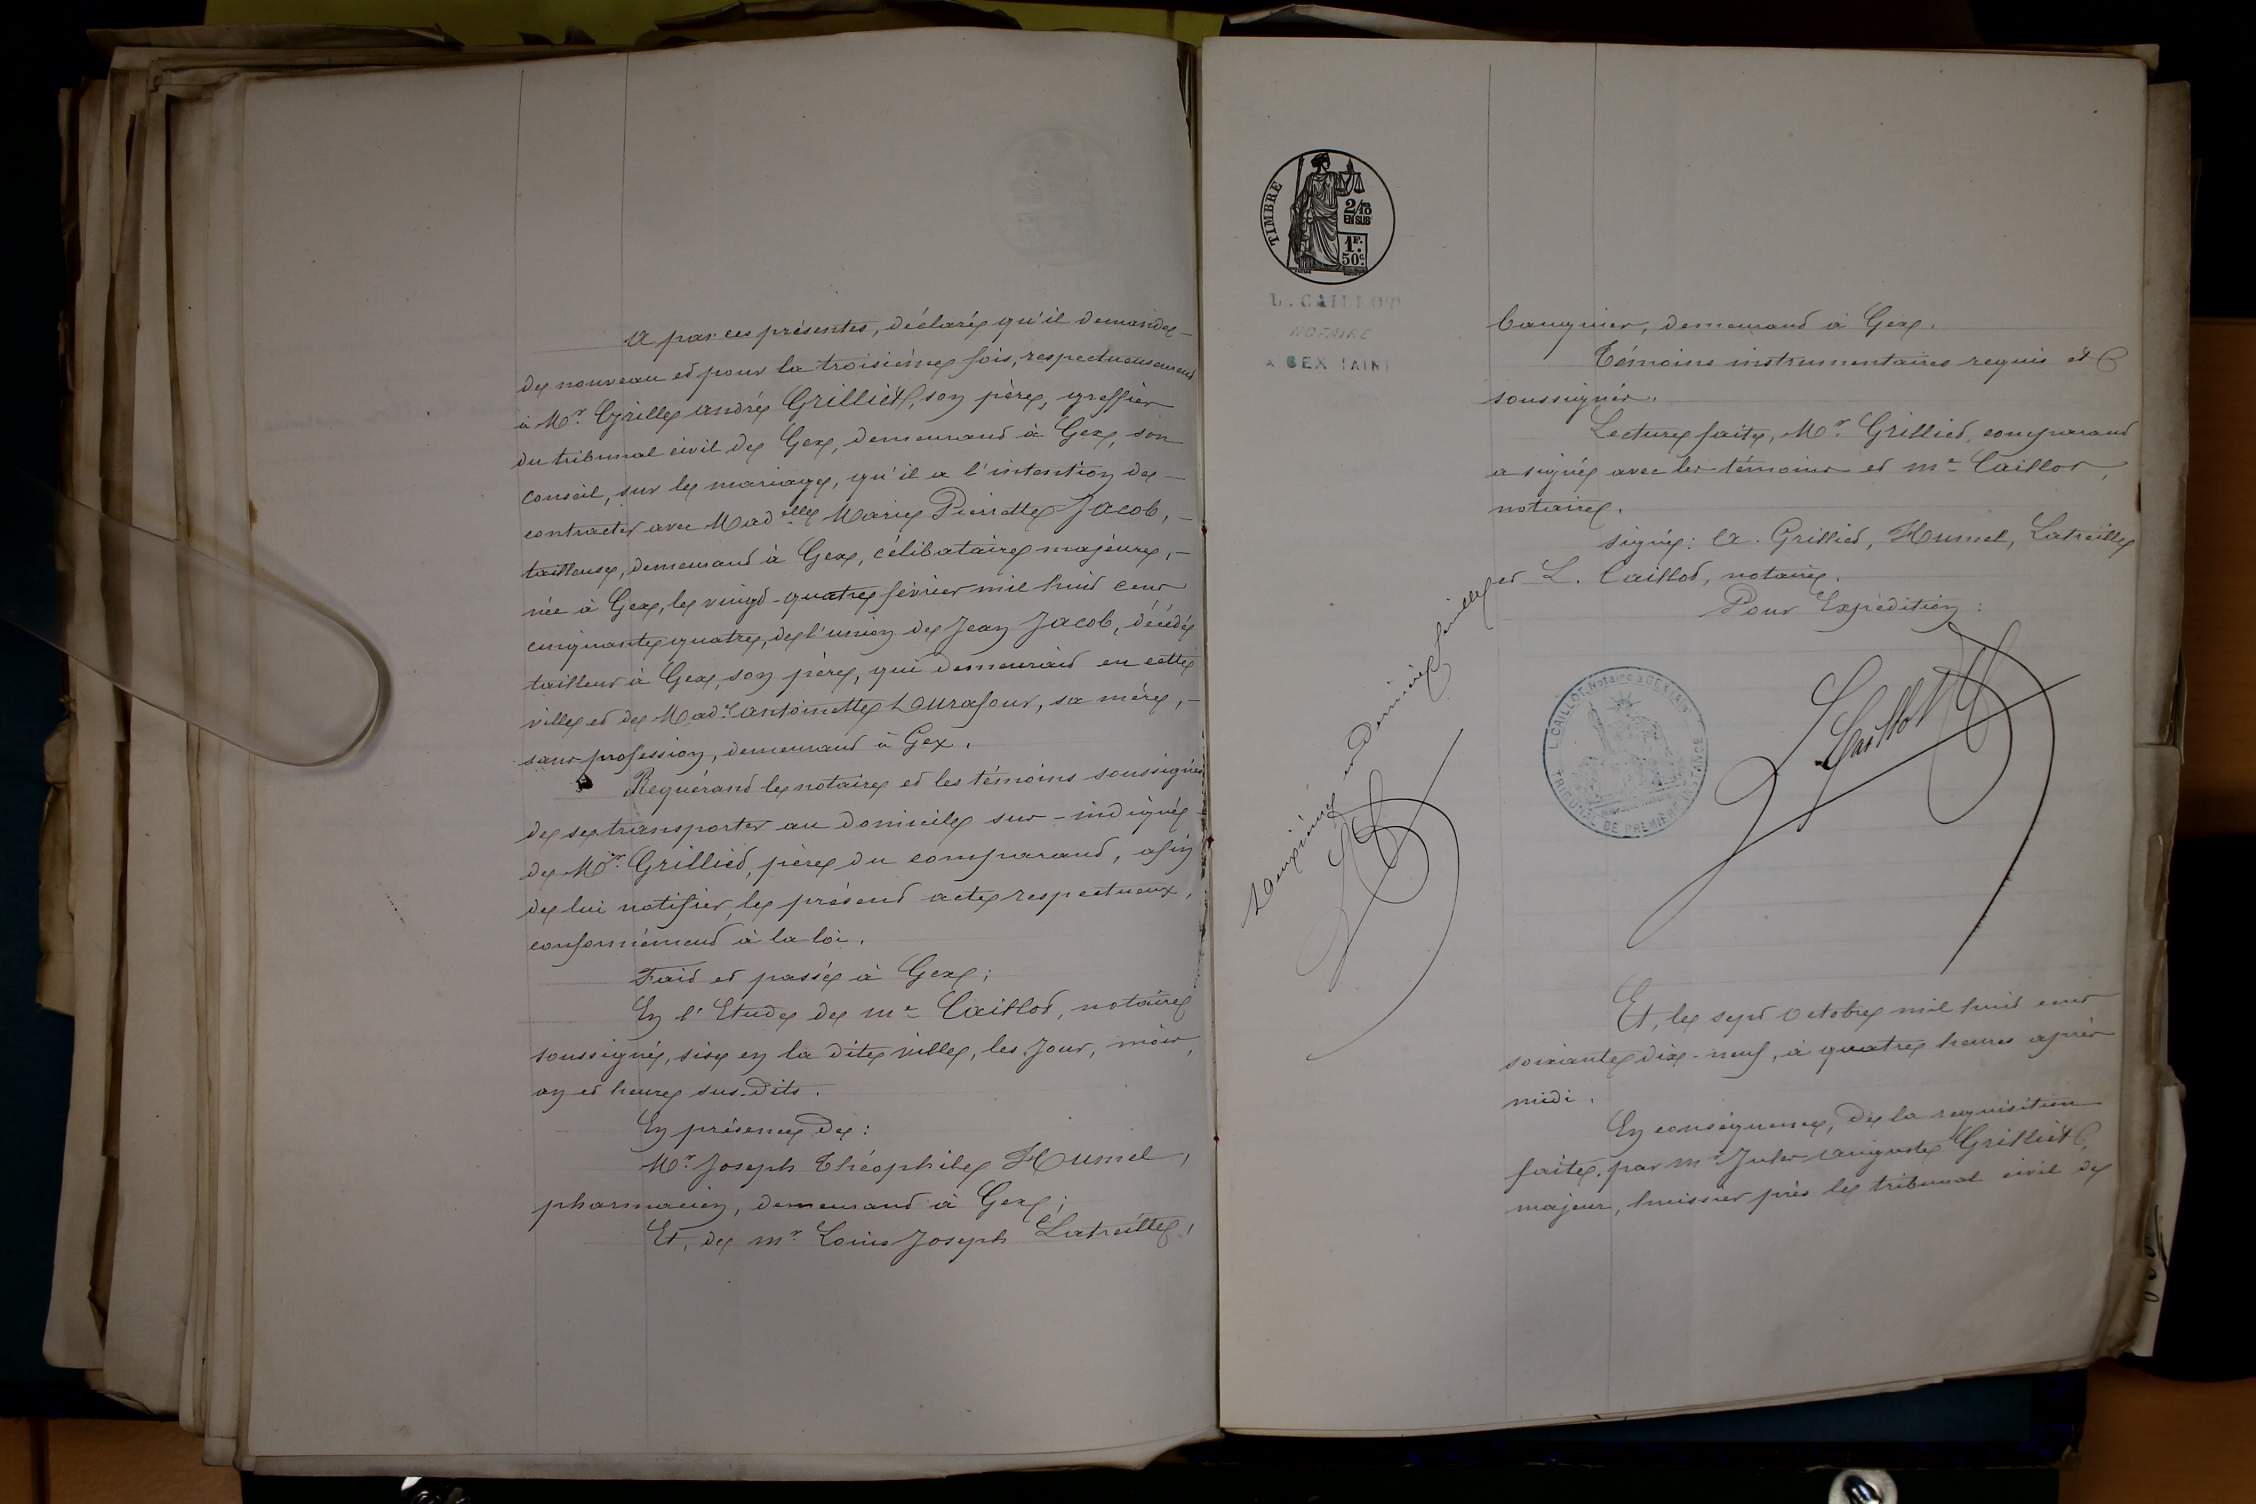 A par ces présentes, déclaré qu'il demande
de nouveau et pour la troisième fois, respectueusement
à Mr. Cyrille André Grilliet, son père, greffier
du tribunal civil de Gex, demeurant à Gex, son
conseil, sur le mariage, qu'il a l'intention de
contracter avec Madelle Marie Pierrette Jacob,
tailleuse, demeurant à Gex, célibataire majeure,
née à Gex, le vingt-quatre février mil huit cent
cinquante quatre, de l'union de Jean Jacob, décédé
tailleur à Gex, son père, qui demeurait en cette
ville et de Made Antoinette Durafour, sa mère,
sans profession, demeurant à Gex.
Requérant le notaire et les témoins soussignés
de se transporter au domicile sus-indiqué
de Mr. Grilliet, père du comparant, afin
de lui notifier, le présent acte respectueux,
conformément à la loi.
Fait et passé à Gex;
En l'Etude de Me Caillot, notaire
soussigné, sise en la dite ville, les jour, mois,
an et heure sus-dits.
En présence de:
Mr. Joseph Théophile Humel,
pharmacien, demeurant à Gex;
Et, de Mr. Louis Joseph Latreille,
TIMBRE
2/10
EN SUS
1F.
50c.
L. CAILLOT
NOTAIRE
A GEX (AIN)
banquier, demeurant à Gex.
Témoins instrumentaires requis et
soussignés.
Lecture faite, Mr. Grilliet, comparant
a signé avec les témoins et Me Caillot,
notaire.
Signé: A. Grilliet, Humel, Latreille
et L. Caillot, notaire.
Pour Expédition:
L. CAILLOT, Notaire à GEX (AIN)
TRIBUNAL DE PREMIERE INSTANCE
L Caillot
Deuxième et dernière feuille
Et, le sept Octobre mil huit cent
soixante dix-neuf, à quatre heures après
midi.
En conséquence, de la réquisition
faite, par Mr Jules Auguste Grilliet,
majeur, huissier près le tribunal civil de